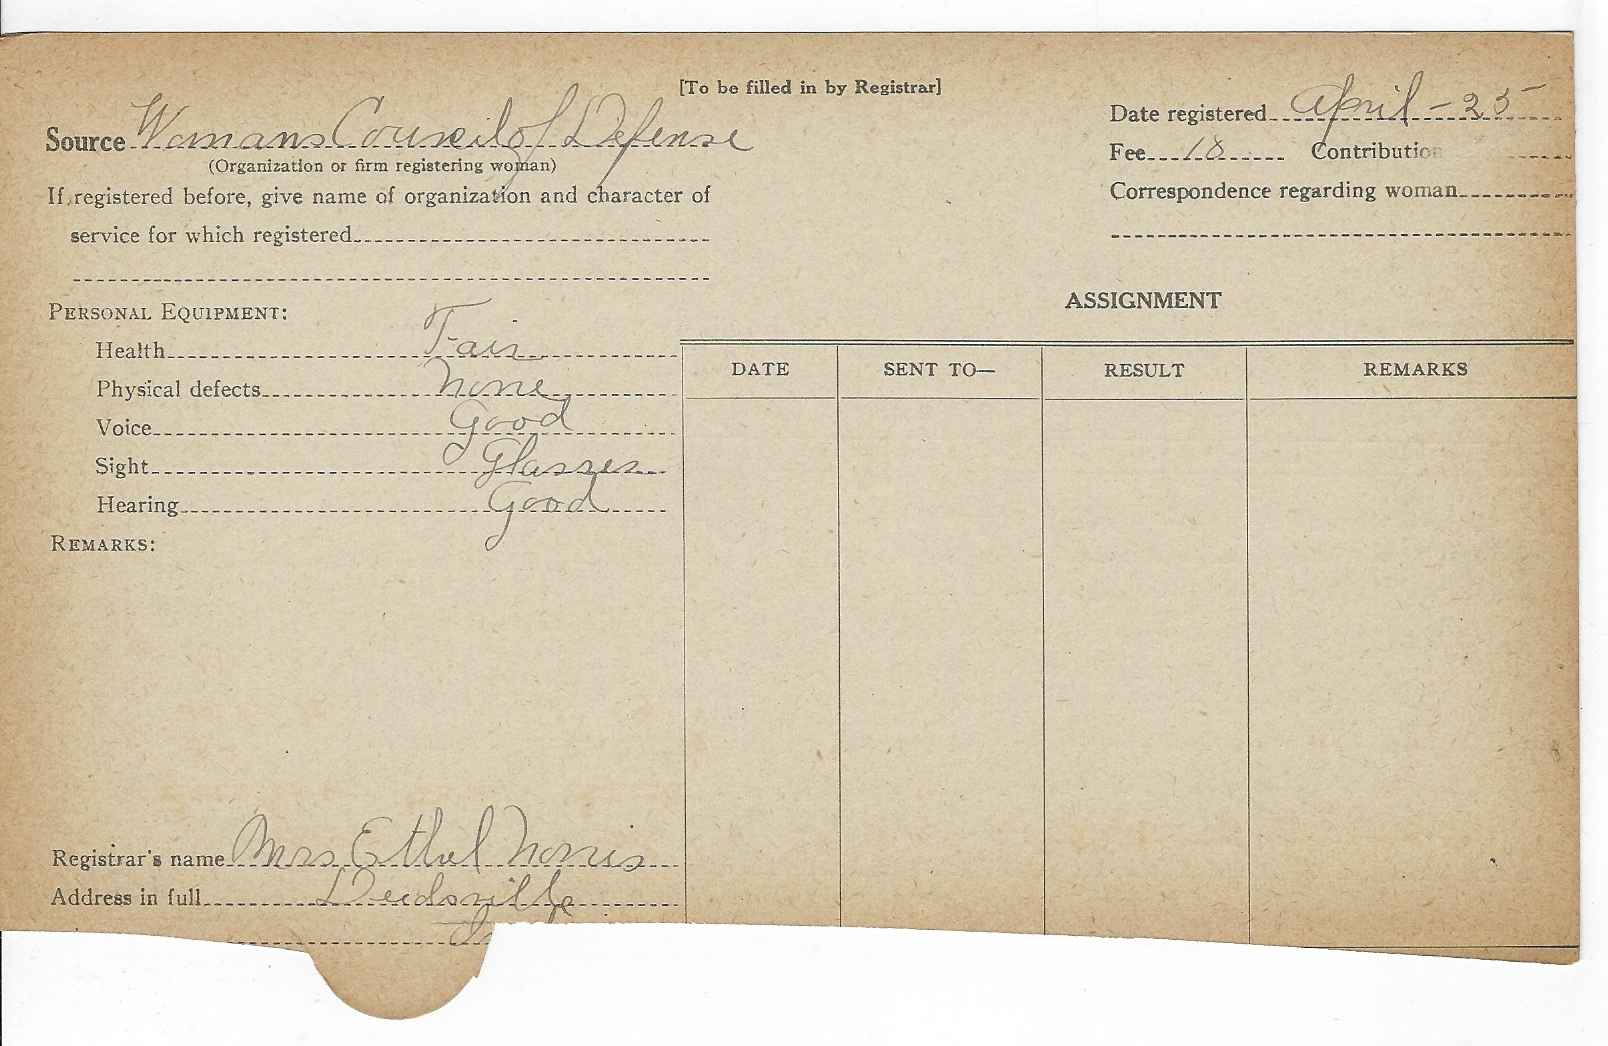 [To be filled in by Registrar]
Source Womans Council of Defense
(Organization or firm registering woman)
If registered before, give name of organization and character of
service for which registered
Date registered April - 25
Fee 18 Contribution
Correspondence regarding woman
PERSONAL EQUIPMENT:
Health Fair
Physical defects None
Voice Good
Sight Glasses
Hearing Good
REMARKS:
ASSIGNMENT
DATE SENT TO— RESULT REMARKS
Registrar's name Mrs Ethel Norris
Address in full Deedsville